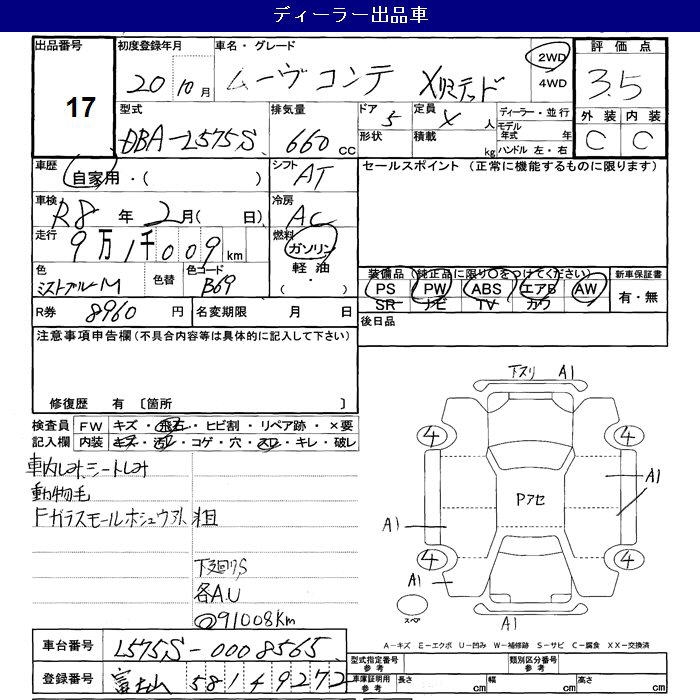 ディーラー出品車
出品番号 初度登録年月 車名・グレード 2WD 評価点
17 20 10月 ムーヴ コンテ Xリミテッド 4WD 3.5
型式 排気量 ドア 定員 ディーラー・並行 外装 内装
DBA-L575S 660cc 5 X人 モデル年式 年 C C
形状 積載 kg ハンドル 左・右
車歴 シフト セールスポイント (正常に機能するものに限ります)
自家用・( ) AT
車検 冷房
R8年 2月( 日) AC
走行 燃料
9万1千009km ガソリン
色 色替 色コード 軽油 装備品(純正品に限り○をつけてください) 新車保証書
ミストブルーM B69 (・) PS PW ABS エアB AW 有・無
SR ナビ TV カワ
R券 8960円 名変期限 月 日 後日品
注意事項申告欄(不具合内容等は具体的に記入して下さい)
修復歴 有 〔箇所 〕
検査員 FW キズ・飛石・ヒビ割・リペア跡・×要
記入欄 内装 キズ・汚レ・コゲ・穴・スレ・キレ・破レ
車内しみ、シートしみ
動物毛
Fガラスモールホシュウ外 粗
下廻りS
各A.U
◎91008Km
下スリ A1
4 4
A1
Pアセ
A1
4 4
A1
スペア
A1
A-キズ E-エクボ U-凹み W-補修跡 S-サビ C-腐食 XX-交換済
車台番号 L575S-0008565 型式指定番号 参考 類別区分番号 参考
登録番号 富士山 581 4 9272 車庫証明用 参考 長さ cm 幅 cm 高さ cm